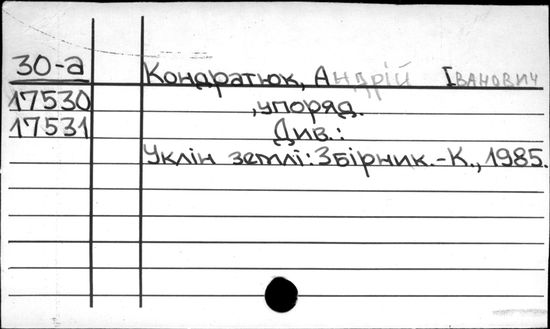 30-а
Кондратюк, Андрій Іванович
17530
,упоряд.
17531
Див.:
Уклін землі: Збірник.-К., 1985.